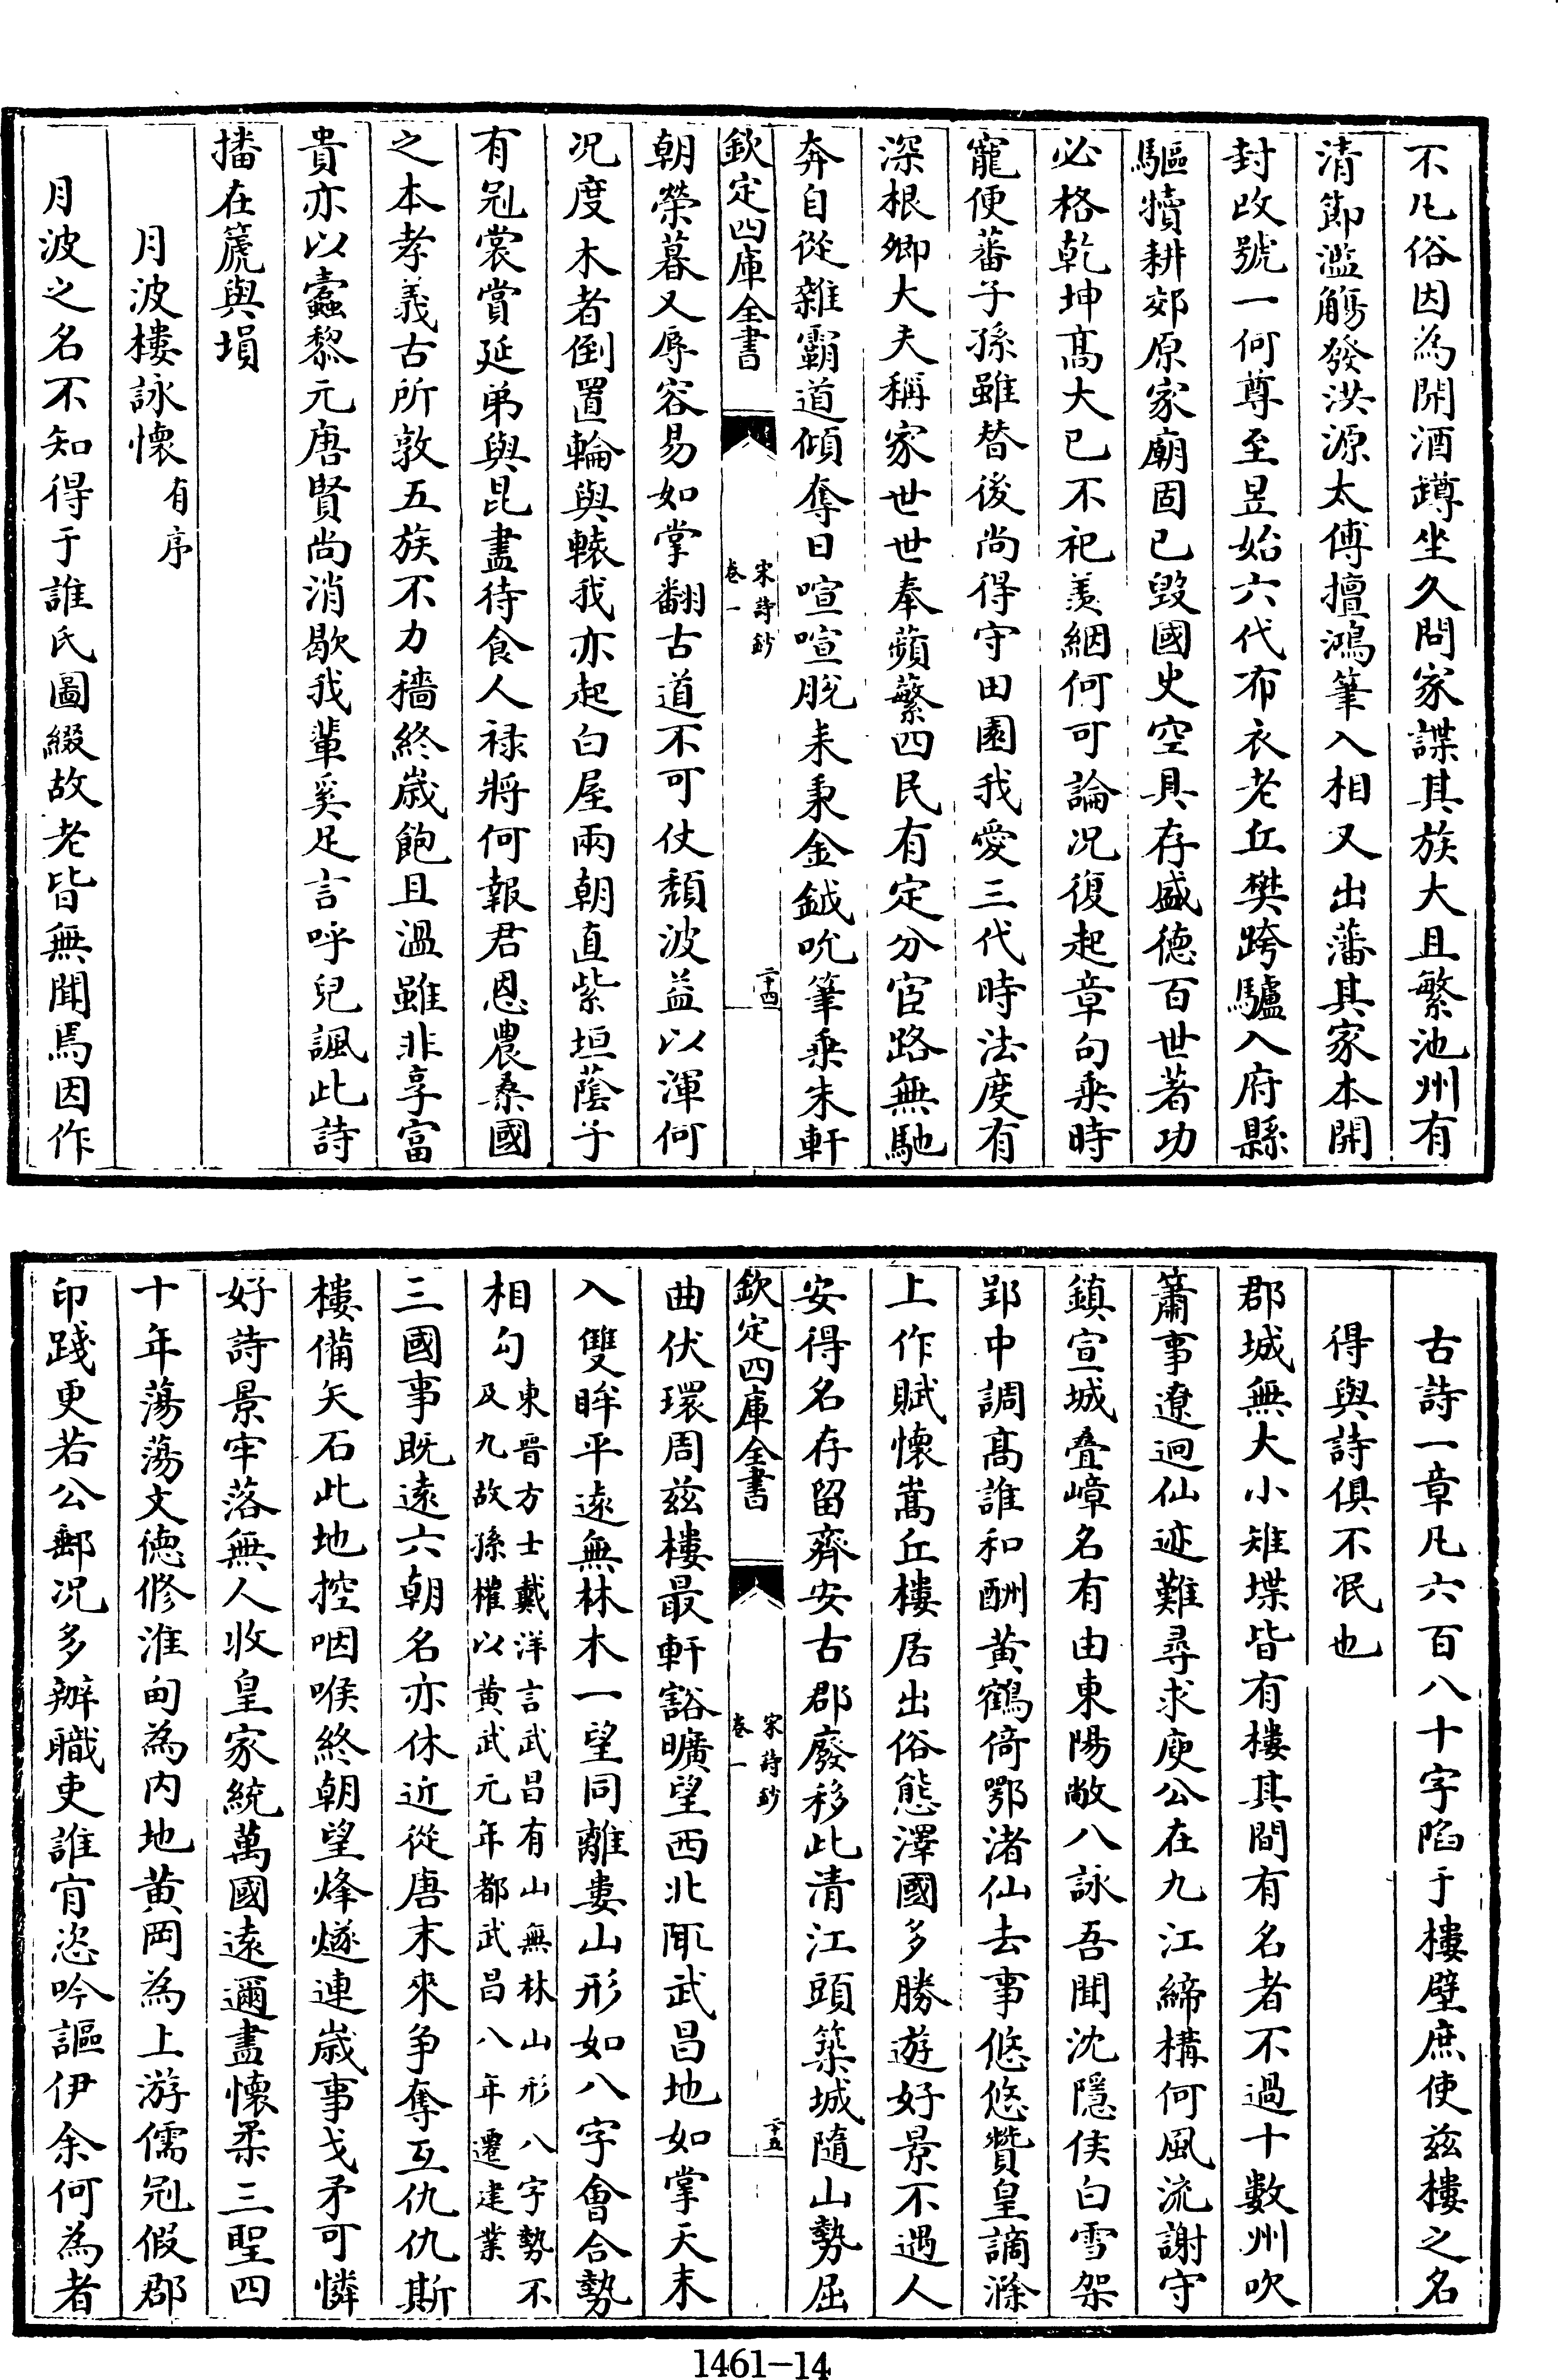 不凡俗因為開酒蹲坐久問家諜其族大且繁池州有
清節濫觴發洪源太傅擅鴻筆入相又出藩其家本開
封改號一何尊至昱始六代布衣老丘樊跨驢入府縣
驅犢耕郊原家廟固已毀國史空具存盛德百世著功
必格乾坤髙大已不祀羨絪何可論况復起章句乗時
寵便蕃子孫雖替後尚得守田園我愛三代時法度有
深根卿大夫稱家世世奉蘋蘩四民有定分宦路無馳
奔自從雜霸道傾奪日喧喧脱耒秉金鉞吮筆乗朱軒
欽定四庫全書
宋詩鈔
卷一
二十四
朝榮暮又辱容易如掌翻古道不可仗頽波益以渾何
况度木者倒置輪與轅我亦起白屋兩朝直紫垣蔭子
有冠裳賞延弟與昆盡待食人禄將何報君恩農桑國
之本孝義古所敦五族不力穡終歲飽且温雖非享富
貴亦以蠧黎元唐賢尚消歇我輩奚足言呼兒諷此詩
播在篪與塤
月波樓詠懷有序
月波之名不知得于誰氏圖綴故老皆無聞焉因作
古詩一章凡六百八十字陷于樓壁庶使兹樓之名
得與詩俱不泯也
郡城無大小雉堞皆有樓其間有名者不過十數州吹
簫事遼迥仙迹難尋求庾公在九江締構何風流謝守
鎮宣城叠嶂名有由東陽敞八詠吾聞沈隱侯白雪架
郢中調髙誰和酬黄鶴倚鄂渚仙去事悠悠贊皇謫滁
上作賦懷嵩丘樓居出俗態澤國多勝遊好景不遇人
安得名存留齊安古郡廢移此清江頭築城隨山勢屈
欽定四庫全書
宋詩鈔
卷一
二十五
曲伏環周兹樓最軒豁曠望西北陬武昌地如掌天末
入雙眸平逺無林木一望同離婁山形如八字會合勢
相勾東晉方士戴洋言武昌有山無林山形八字勢不
及九故孫權以黄武元年都武昌八年遷建業
三國事既逺六朝名亦休近從唐末來争奪互仇仇斯
樓備矢石此地控咽喉終朝望烽燧連歲事戈矛可憐
好詩景牢落無人收皇家統萬國逺邇盡懷柔三聖四
十年蕩蕩文德修淮甸為内地黄岡為上游儒冠假郡
印踐更若公郵况多辦職吏誰肯恣吟謳伊余何為者
1461-14